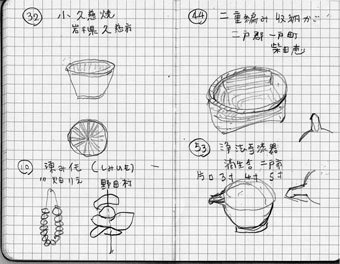 32 小久慈焼
岩手県久慈市
10 凍み花 (しみいも)
野田村
44 二重編み 収納かご
二戸郡 一戸町
柴田恵
53 浄法寺漆器
滴生舎 二戸市
片口 3寸 4寸 5寸